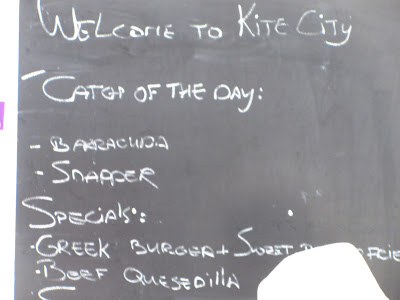 WELCOME TO KITE CITY
CATCH OF THE DAY:
- BARRACUDA
- SNAPPER
SPECIALS:
· GREEK BURGER + SWEET
· BEEF QUESEDILLA